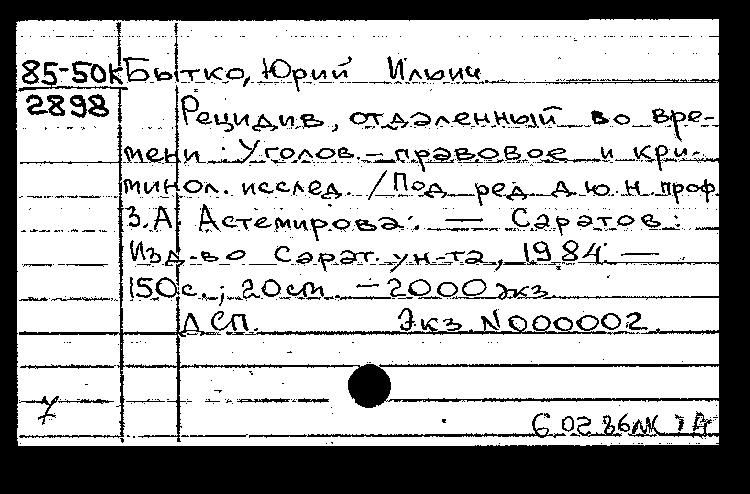 85-50к Бытко, Юрий Ильич
2898
Рецидив, отдаленный во вре-
мени : Уголов.-правовое и кри-
минол. исслед. / Под ред д.ю.н. проф
З.А. Астемирова. — Саратов :
Изд-во Сарат. ун-та, 1984. —
150 с. ; 20 см. — 2000 экз.
ДСП. Экз. N000002.
7
6.02.86